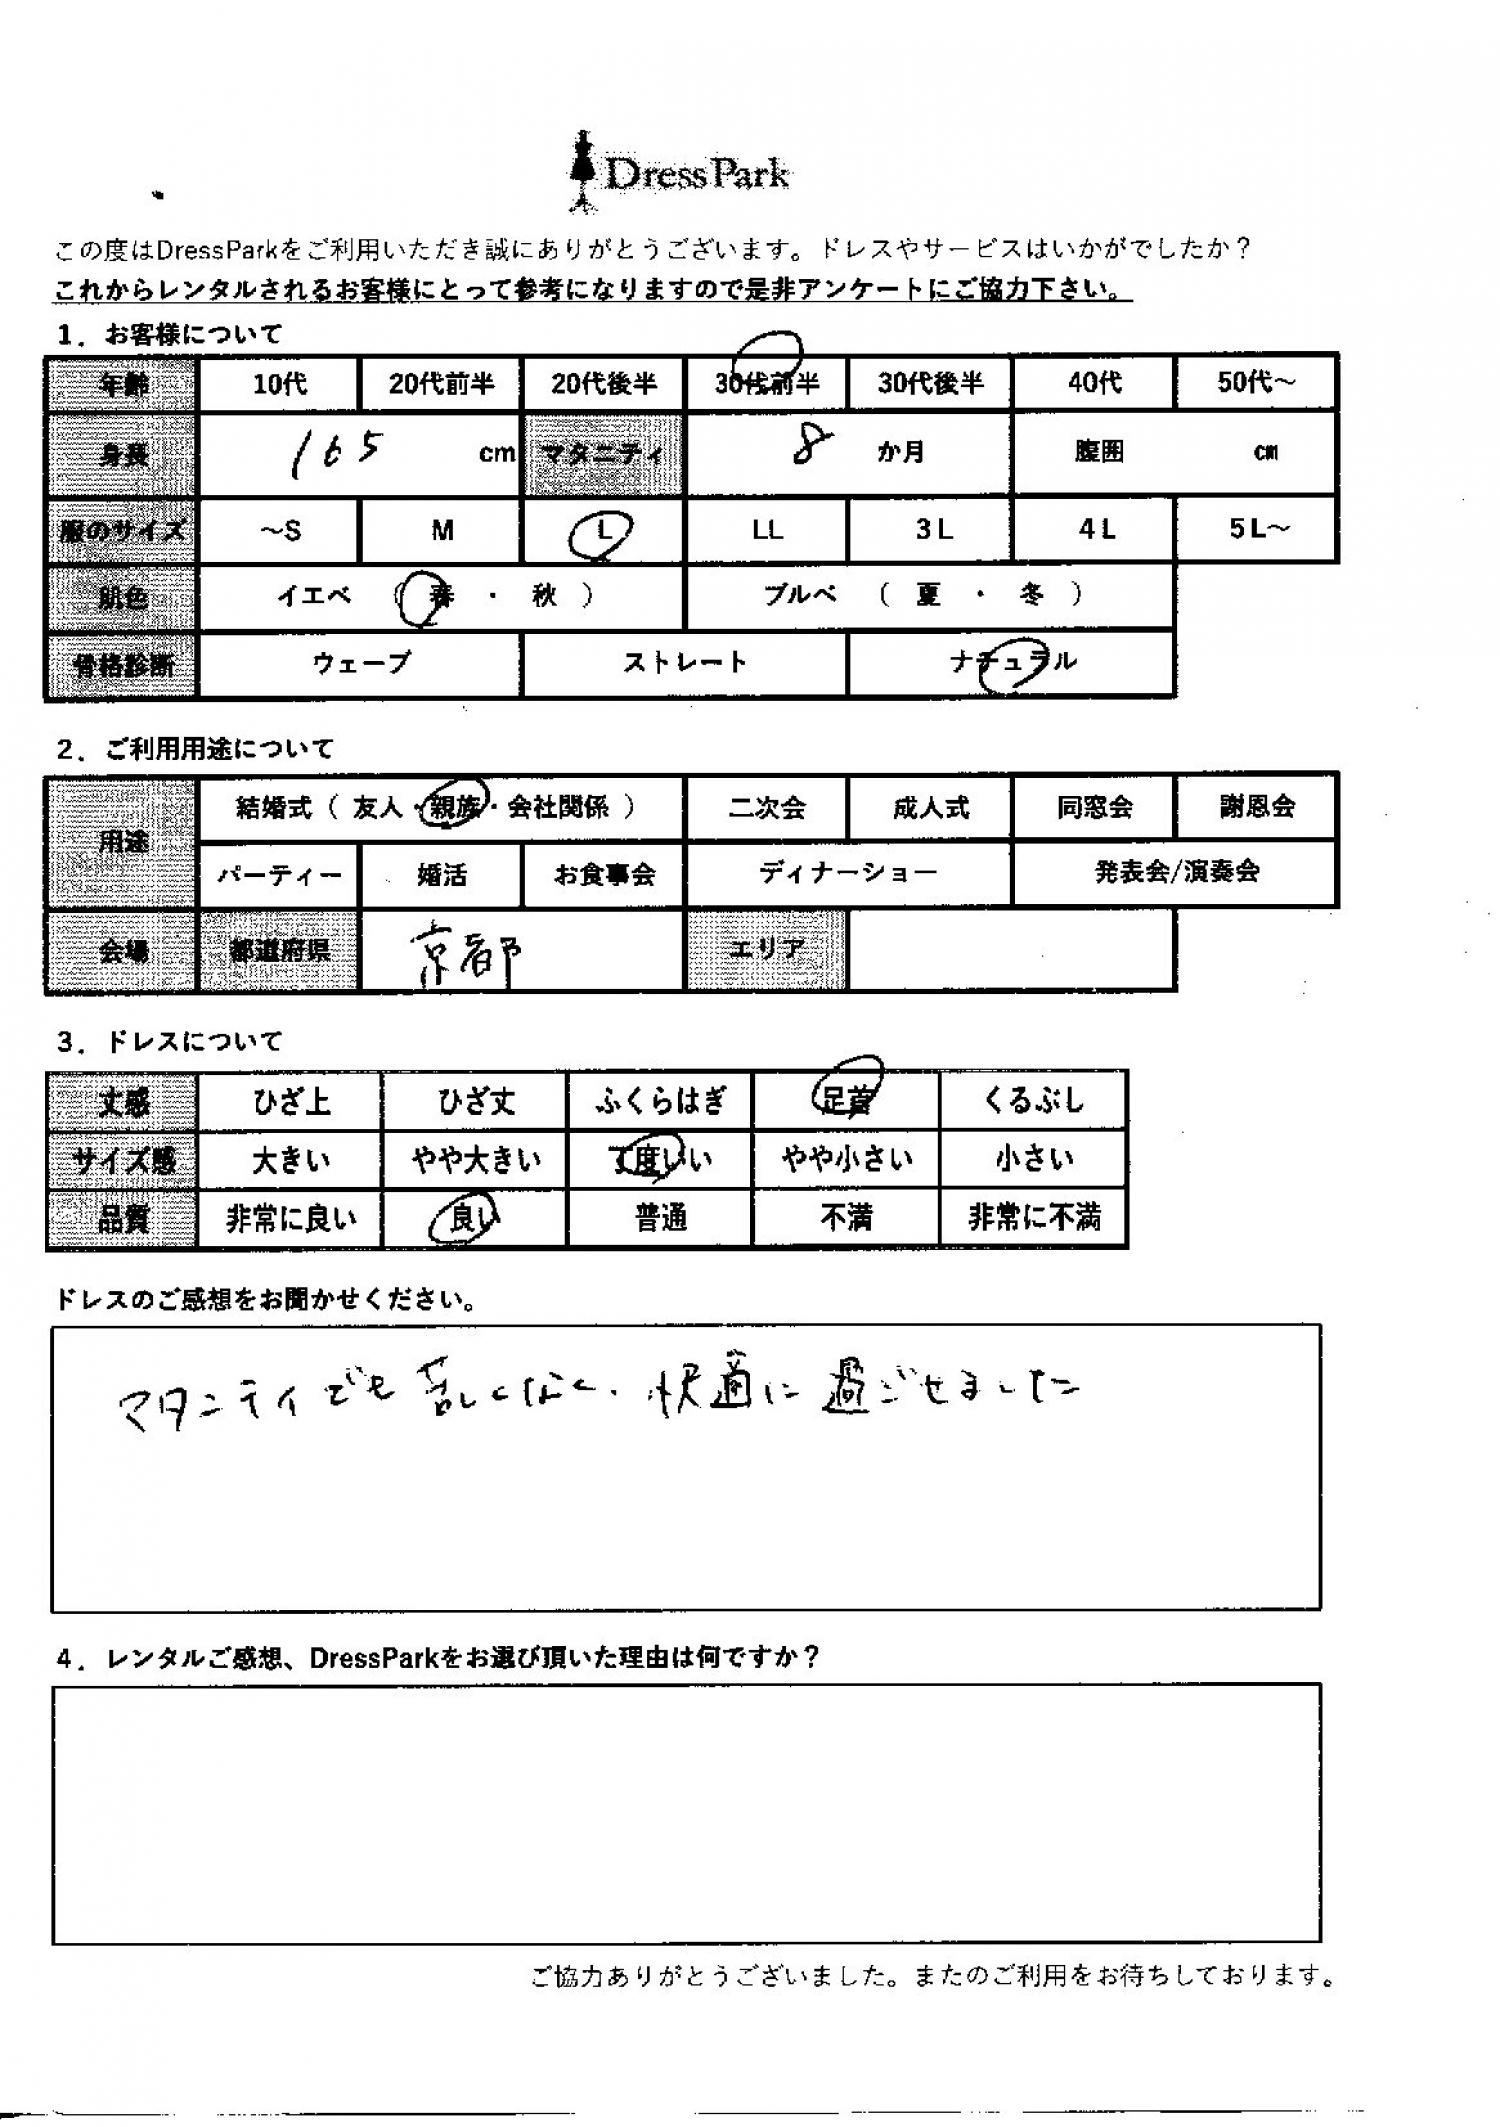 DressPark
この度はDressParkをご利用いただき誠にありがとうございます。ドレスやサービスはいかがでしたか？
これからレンタルされるお客様にとって参考になりますので是非アンケートにご協力下さい。
1．お客様について
年齢 10代 20代前半 20代後半 30代前半 30代後半 40代 50代～
身長 165 cm マタニティ 8 か月 腹囲 cm
服のサイズ ～S M L LL 3L 4L 5L～
肌色 イエベ （ 春 ・ 秋 ） ブルベ （ 夏 ・ 冬 ）
骨格診断 ウェーブ ストレート ナチュラル
2．ご利用用途について
用途 結婚式（ 友人・親族・会社関係 ） 二次会 成人式 同窓会 謝恩会
パーティー 婚活 お食事会 ディナーショー 発表会/演奏会
会場 都道府県 京都 エリア
3．ドレスについて
丈感 ひざ上 ひざ丈 ふくらはぎ 足首 くるぶし
サイズ感 大きい やや大きい 丁度いい やや小さい 小さい
品質 非常に良い 良い 普通 不満 非常に不満
ドレスのご感想をお聞かせください。
マタニティでも苦しくなく、快適に過ごせました
4．レンタルご感想、DressParkをお選び頂いた理由は何ですか？
ご協力ありがとうございました。またのご利用をお待ちしております。